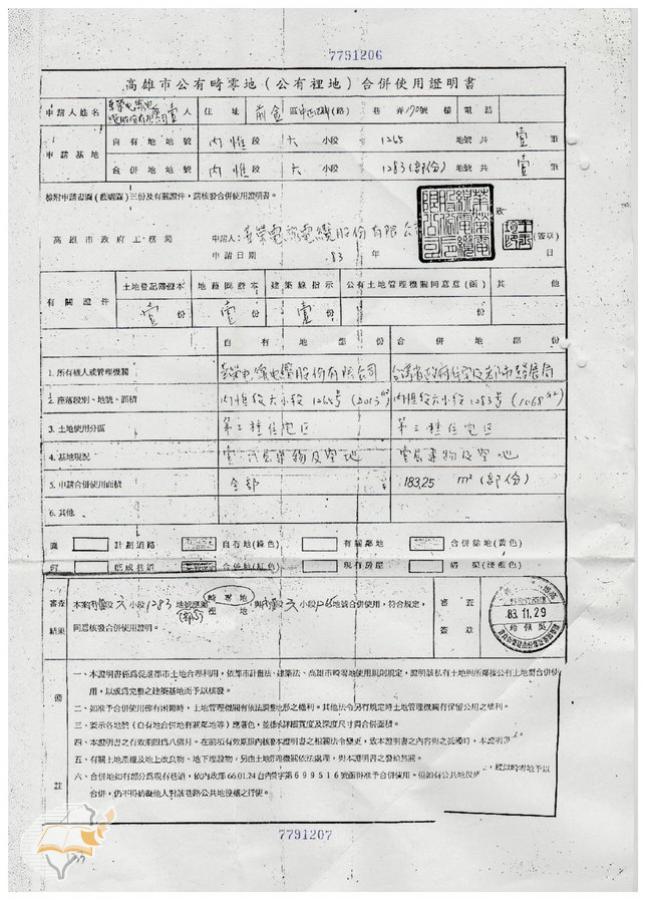 7791206
高雄市公有畸零地（公有裡地）合併使用證明書
申請人姓名 華榮電線電纜股份有限公司 壹 人 住址 前金 區 中正四 (路) 巷 弄 170號 樓 電話
申請基地 自有地地號 內惟 段 六 小段 1265 地號 共 壹 筆
合併地地號 內惟 段 六 小段 1283(部份) 地號 共 壹 筆
檢附申請書圖（藍曬圖）三份及有關證件，請核發合併使用證明書。
致
高雄市政府工務局 申請人：華榮電線電纜股份有限公司 (簽章)
申請日期 83 年 日
有關證件 土地登記簿謄本 地籍圖謄本 建築線指示 公有土地管理機關同意書(函) 其他
壹 份 壹 份 壹 份 份
自有地部份 合併地部份
1. 所有權人或管理機關 華榮電線電纜股份有限公司 台灣省政府住宅及都市發展局
2. 座落段別、地號、面積 內惟段六小段1265號 (2013㎡) 內惟段六小段1283號 (1068㎡)
3. 土地使用分區 第三種住宅區 第三種住宅區
4. 基地現況 房屋建物及空地 房屋建物及空地
5. 申請合併使用面積 全部 183.25 m² (部份)
6. 其他
圖 計劃道路 自有地(綠色) 有關鄰地 合併餘地(黃色)
例 既成巷道 合併地(紅色) 現有房屋
審查結果 本案內惟段六小段1283地號(部份)應屬畸零地 裡地 與內惟段六小段1265地號合併使用，符合規定，
同意核發合併使用證明。
審查簽章
83.11.29
備註
一、本證明書係為促進都市土地合理利用，依都市計畫法、建築法、高雄市畸零地使用規則規定，證明該私有土地與所鄰接公有土地需合併使
用，以成為完整之建築基地而予以核發。
二、如准予合併使用確有困難時，土地管理機關有依法調整地形之權利。其他法令另有規定時土地管理機關有保留公用之權利。
三、要示各地號（自有地合併地有關鄰地等）應著色，並標示詳細寬度及深度尺寸與合併面積。
四、本證明書之有效期限為八個月。在前項有效期限內核發本證明書之相關法令變更，致本證明書之內容與之抵觸時，本證明
五、有關土地產權及地上改良物、地下埋設物，另由土地管理機關依法處理，與本證明書之發給無關。
六、合併地如有部分為現有巷道，依內政部66.01.24台內營字第699516號函得准予合併使用。但如有公共地役
，經以畸零地予以
合併，仍不得妨礙他人對該巷路公共地役權之行使。
7791207